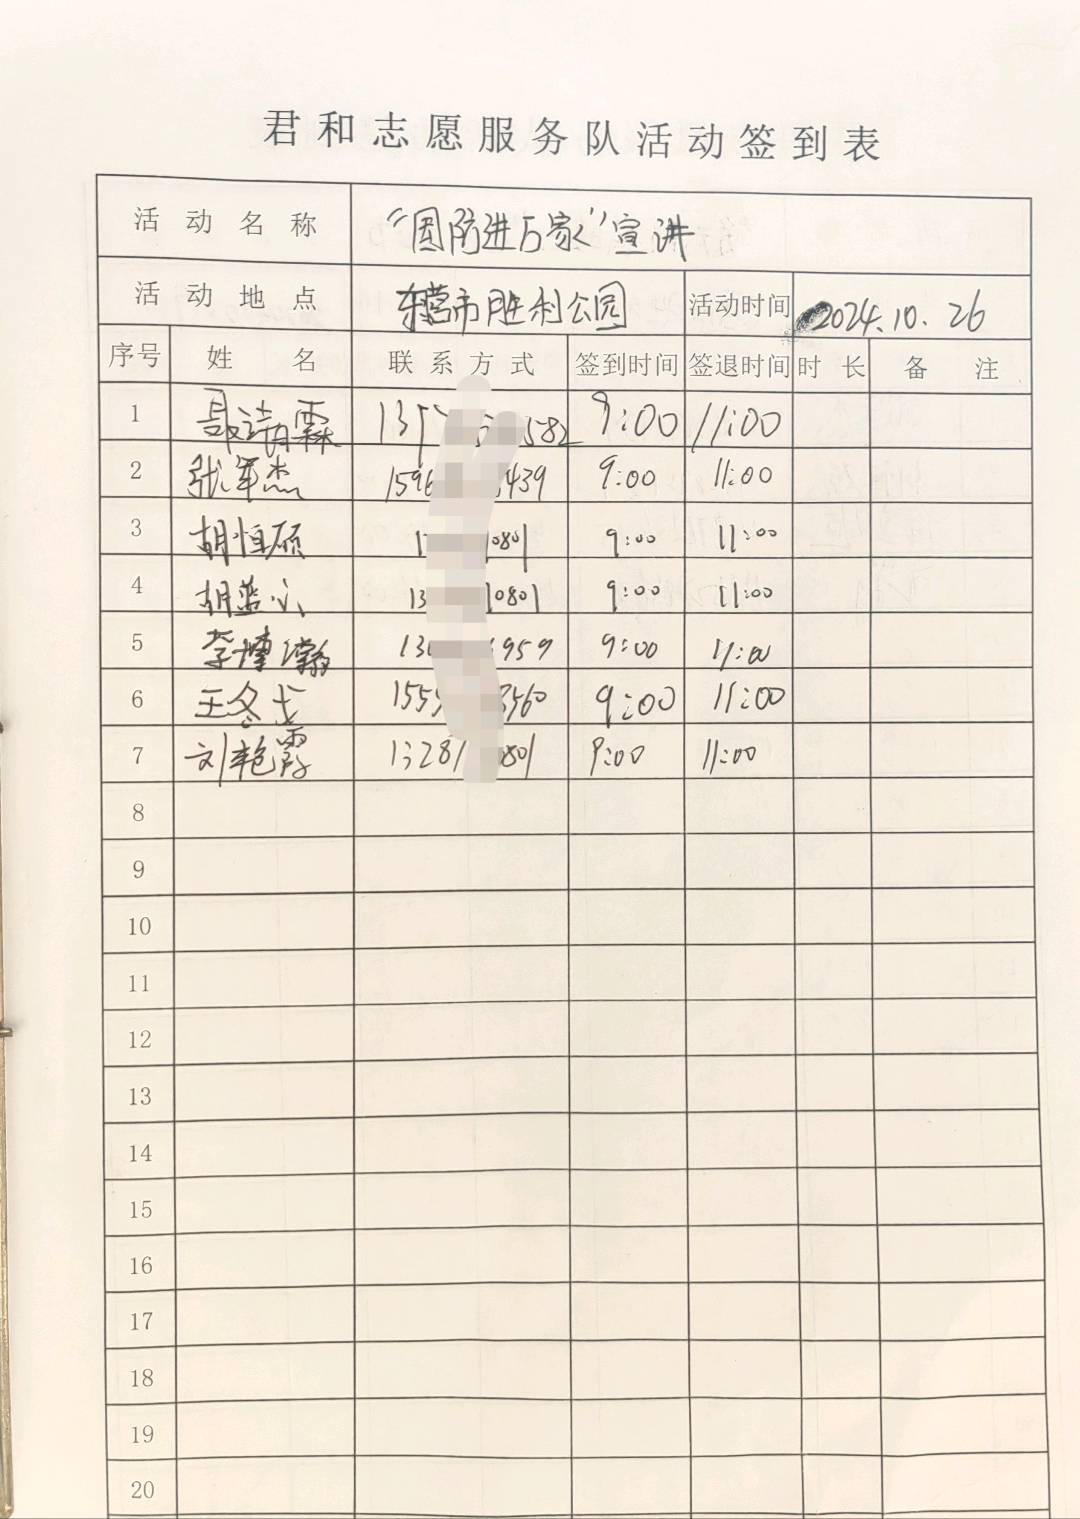 君和志愿服务队活动签到表
活动名称 “国防进万家”宣讲
活动地点 东营市胜利公园 活动时间 2024.10.26
序号 姓名 联系方式 签到时间 签退时间 时长 备注
1 聂靖霖 135 582 9:00 11:00
2 张军杰 1596 439 9:00 11:00
3 胡恒硕 1 0801 9:00 11:00
4 胡蓝 13 0801 9:00 11:00
5 李 瀚 13 959 9:00 11:00
6 王冬戈 1555 3560 9:00 11:00
7 刘艳霞 13281 0801 9:00 11:00
8
9
10
11
12
13
14
15
16
17
18
19
20